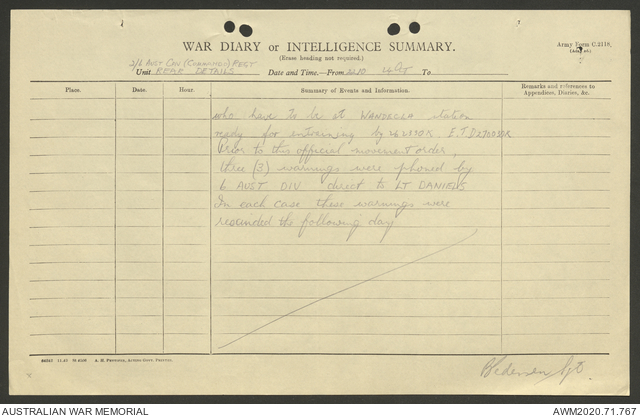 Army Form C.2118.
WAR DIARY or INTELLIGENCE SUMMARY.
(Erase heading not required.)
2/6 AUST CAV (COMMANDO) REGT
Unit REAR DETAILS Date and Time—From To
Place. Date. Hour. Summary of Events and Information. Remarks and references to
Appendices, Diaries, &c.
who have to be at WANDECLA station
ready for entraining by E.T.D
Prior to this official movement order,
three (3) warnings were phoned by
6 AUST DIV direct to LT DANIELS
In each case these warnings were
rescinded the following day.
AUSTRALIAN WAR MEMORIAL
AWM2020.71.767